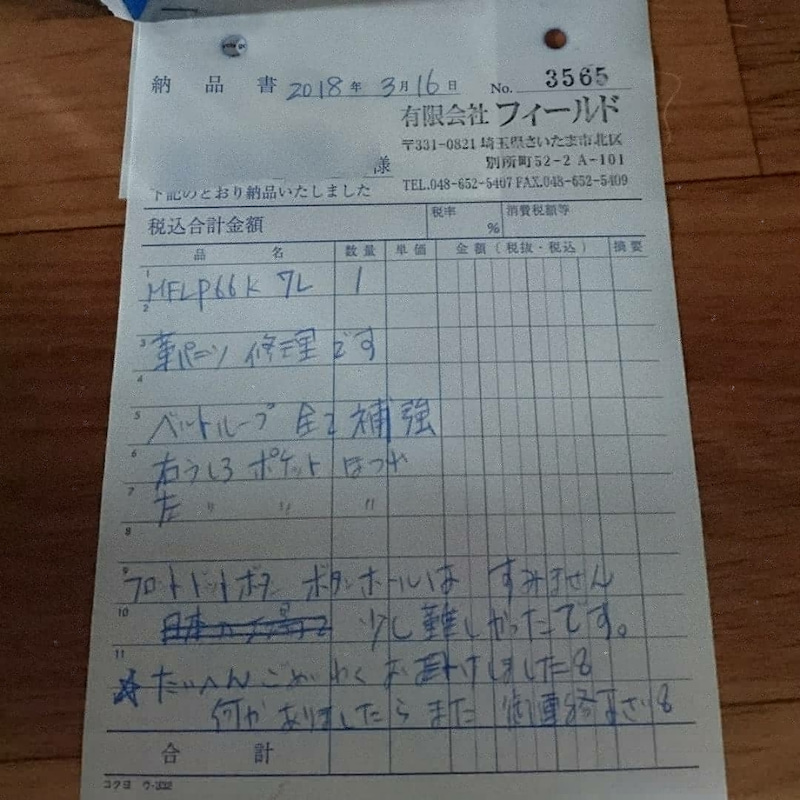 納品書 2018年 3月 16日 No. 3565
有限会社 フィールド
〒331-0821 埼玉県さいたま市北区
別所町52-2 A-101
様
TEL.048-652-5407 FAX.048-652-5409
下記のとおり納品いたしました
税込合計金額 税率 % 消費税額等
品名 数量 単価 金額(税抜・税込) 摘要
1 MFLP66K 7L 1
2
3 革パンツ 修理です
4
5 ベルトループ 全て補強
6 右うしろ ポケット ほつれ
7 左 〃 〃 〃
8
9 フロントドットボタン ボタンホールは すみません
10 少し難しかったです。
11 ☆たいへんごめいわくお掛けしました
何かありましたらまた御連絡下さい
合計
コクヨ ウ-332